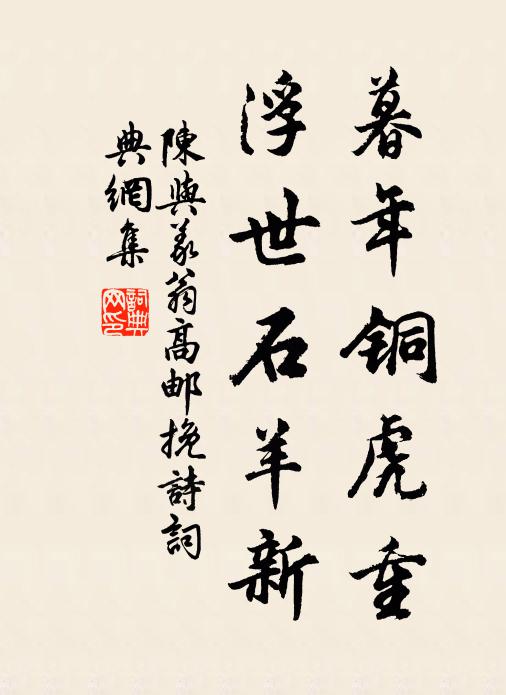 暮年铜虎重
浮世石羊新
陳與義翁高邮挽詩詞
典網集
詞典网印